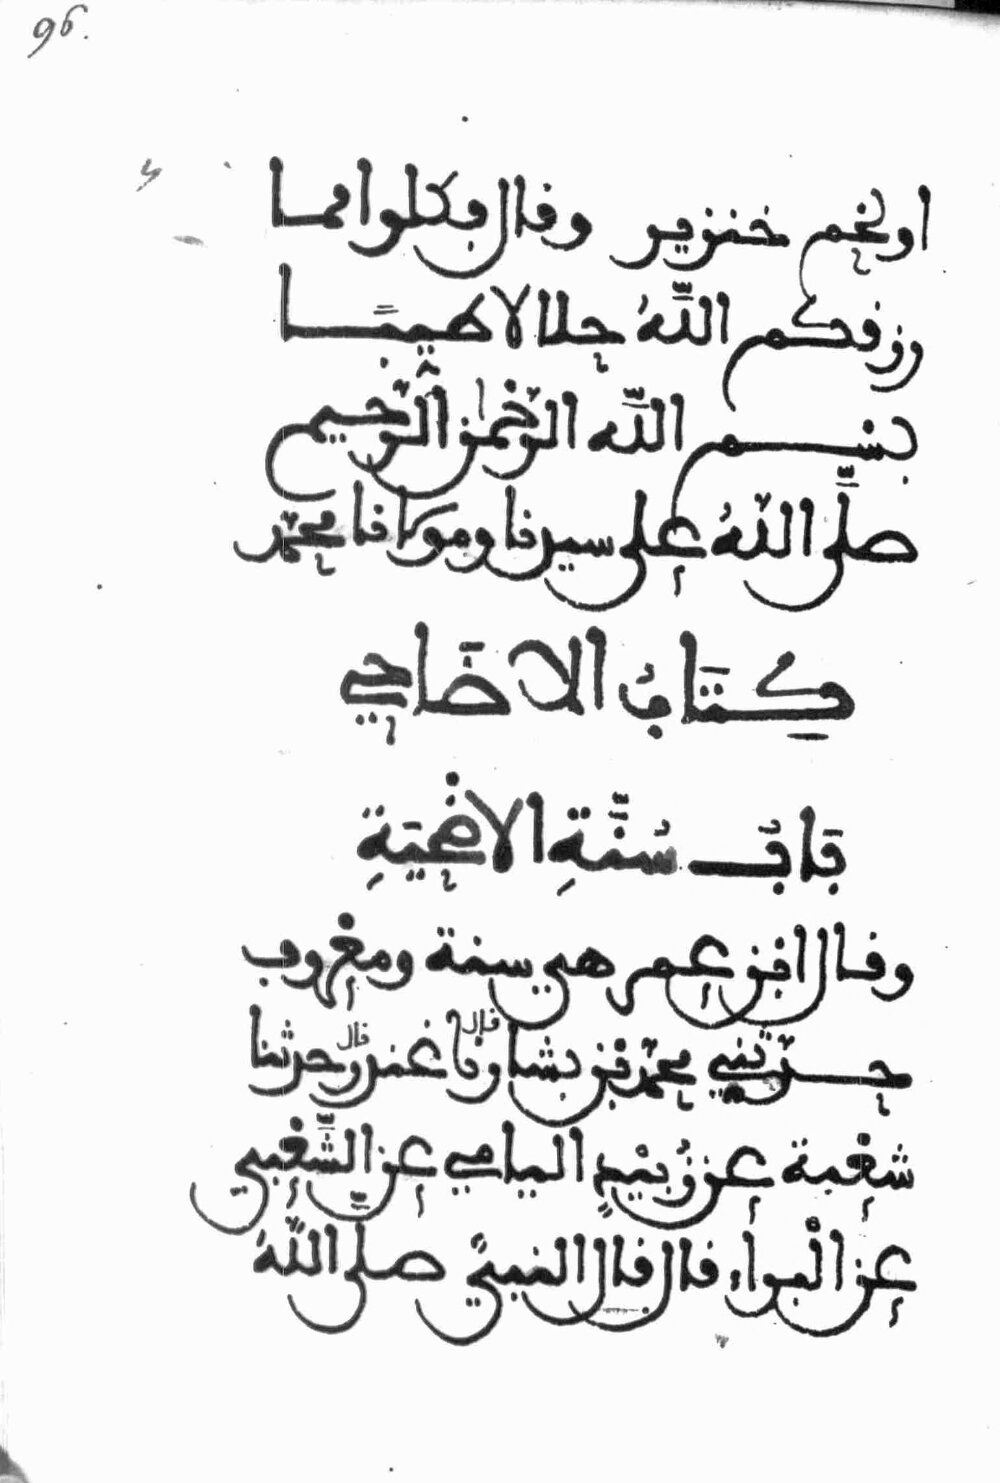 96.
او لحم خنزير وقال فكلوا مما
رزقكم الله حلالا طيبا
بسم الله الرحمن الرحيم
صلَّى اللهُ على سيدنا ومولانا محمد
كِتَابُ الاضَاحي
بَابُ سُنَّةِ الاضْحِيَةِ
وقال ابن عمر هي سنة ومعروف
حدثني محمد بن بشار قال نا غندر قال حدثنا
شعْبة عن زُبيْدٍ اليامي عن الشَّعْبي
عن الْبراء قال قال النبيُّ صلى اللهُ